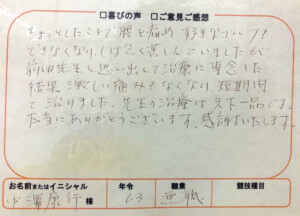 □喜びの声 □ご意見ご感想
ちょっとしたことで腰を痛め 好きなゴルフも
できなくなり、しばらく悩んでいましたが
前田先生を思い出して治療に専念した
結果 激しい痛みもなくなり 短期間
で治りました。先生の治療は天下一品です。
本当にありがとうございます。感謝いたします。
お名前またはイニシャル 年令 職業 競技種目
小澤康行 様 63 無職